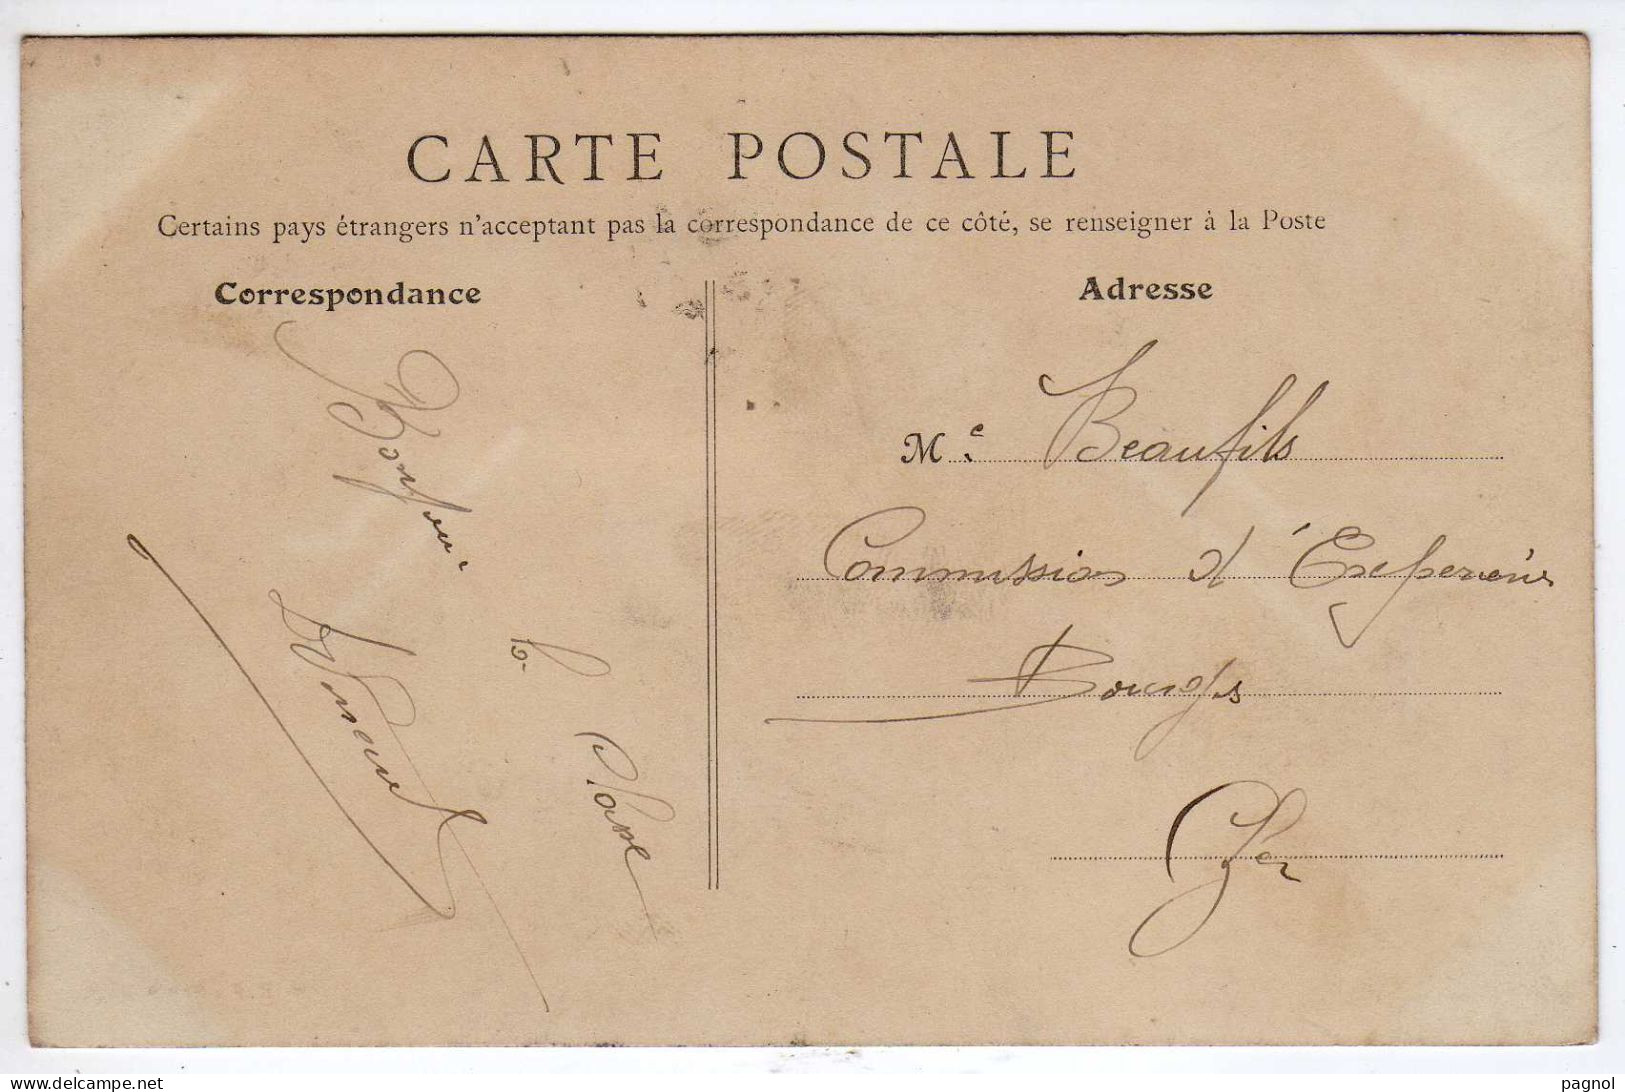 CARTE POSTALE
Certains pays étrangers n'acceptant pas la correspondance de ce côté, se renseigner à la Poste
Correspondance
Adresse
la Classe
M.e Beaufils
Commission d'Expérience
Bourges
Cher
www.delcampe.net
pagnol